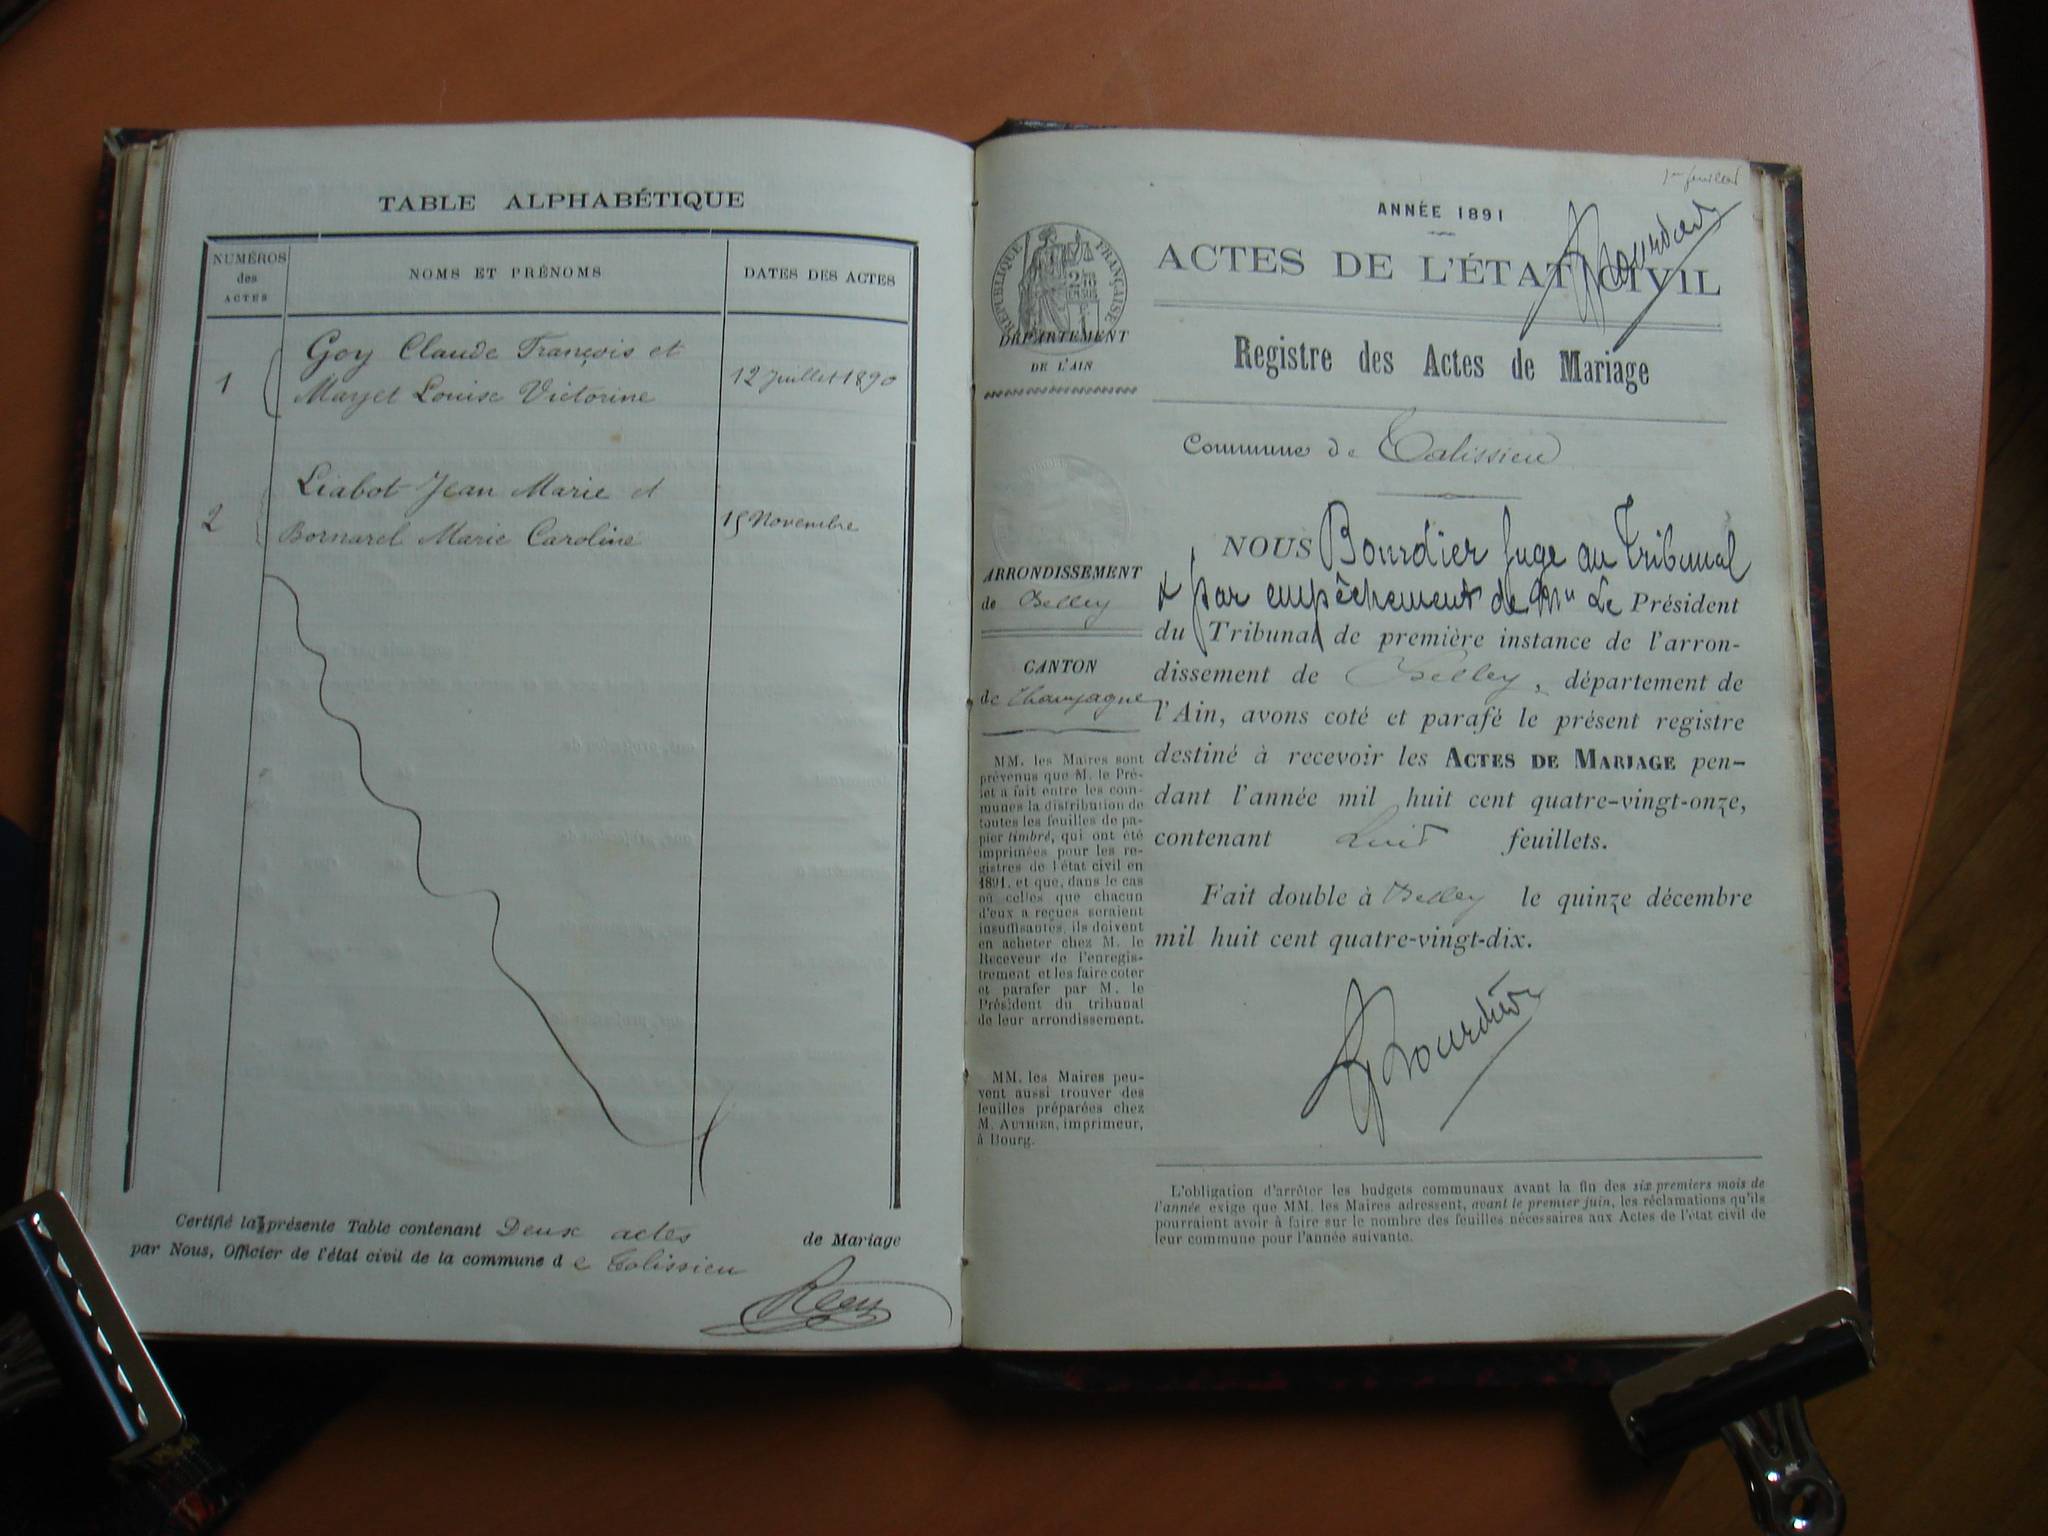 TABLE ALPHABÉTIQUE
NUMÉROS
des
ACTES
NOMS ET PRÉNOMS
DATES DES ACTES
1
Goy Claude François et
Marjet Louise Victorine
12 Juillet 1890
2
Liabot Jean Marie et
Bornarel Marie Caroline
15 Novembre
Certifié la présente Table contenant Deux actes de Mariage
par Nous, Officier de l'état civil de la commune d e Talissieu
1er feuillet
ANNÉE 1891
Bourdier
ACTES DE L'ÉTAT CIVIL
RÉPUBLIQUE FRANÇAISE
DÉPARTEMENT
DE L'AIN
Registre des Actes de Mariage
Commune de Talissieu
ARRONDISSEMENT
de Belley
CANTON
de Champagne
MM. les Maires sont
prévenus que M. le Pré-
fet a fait entre les com-
munes la distribution de
toutes les feuilles de pa-
pier timbré, qui ont été
imprimées pour les re-
gistres de l'état civil en
1891, et que, dans le cas
où celles que chacun
d'eux a reçues seraient
insuffisantes, ils doivent
en acheter chez M. le
Receveur de l'enregis-
trement et les faire coter
et parafer par M. le
Président du tribunal
de leur arrondissement.
MM. les Maires peu-
vent aussi trouver des
feuilles préparées chez
M. AUTHIER, imprimeur,
à Bourg.
NOUS Bourdier Juge au Tribunal
& par empêchement de Mr Le Président
du Tribunal de première instance de l'arron-
dissement de Belley, département de
l'Ain, avons coté et parafé le présent registre
destiné à recevoir les ACTES DE MARIAGE pen-
dant l'année mil huit cent quatre-vingt-onze,
contenant huit feuillets.
Fait double à Belley le quinze décembre
mil huit cent quatre-vingt-dix.
Bourdier
L'obligation d'arrêter les budgets communaux avant la fin des six premiers mois de
l'année exige que MM. les Maires adressent, avant le premier juin, les réclamations qu'ils
pourraient avoir à faire sur le nombre des feuilles nécessaires aux Actes de l'état civil de
leur commune pour l'année suivante.